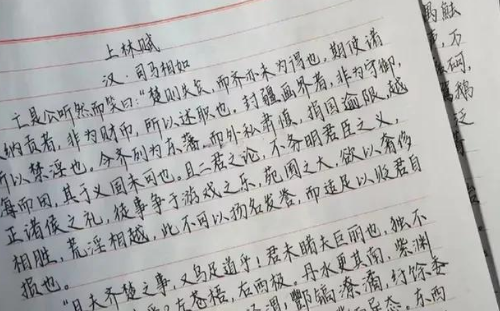 上林赋
汉·司马相如
亡是公听然而笑曰："楚则失矣，而齐亦未为得也，夫使诸
纳贡者，非为财币，所以述职也，封疆画界者，非为守御，
所以禁淫也。今齐列为东藩，而外私肃慎，捐国逾限，越
海而田，其于义固未可也。且二君之论，不务明君臣之义，
正诸侯之礼，徒事争于游戏之乐，苑囿之大，欲以奢侈
相胜，荒淫相越，此不可以扬名发誉，而适足以㕹君自
损也。
"且夫齐楚之事，又乌足道乎！君未睹夫巨丽也，独不
左苍梧，右西极。丹水更其南，紫渊
酆镐潦潏，纡馀委
态。东西
触
万
鹅
泛